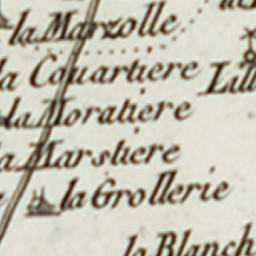 la Marzolle
la Couartiere
Lill
la Moratiere
la Marstiere
la Grollerie
la Blanch